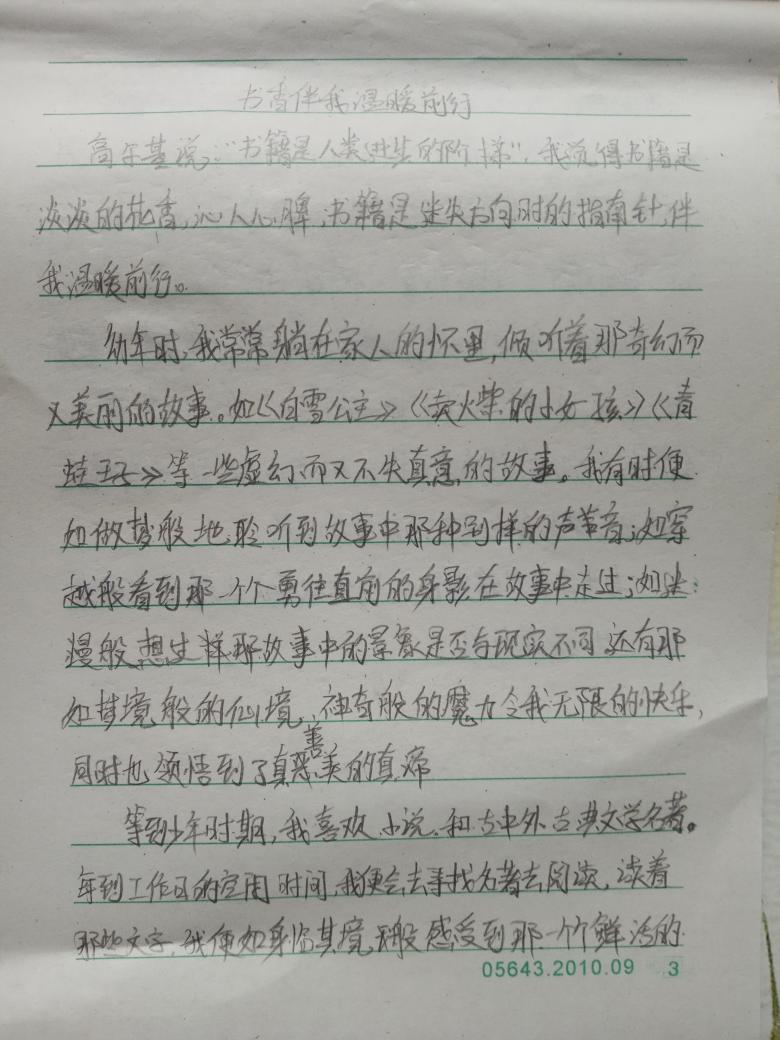 书香伴我温暖前行
高尔基说:"书籍是人类进步的阶梯",我觉得书籍是
淡淡的花香,沁人心脾,书籍是迷失方向时的指南针,伴
我温暖前行。
幼年时,我常常躺在家人的怀里,倾听着那奇幻而
又美丽的故事。如《白雪公主》《卖火柴的小女孩》《青
蛙王子》等一些虚幻而又不失真意的故事。我有时便
如做梦般地聆听到故事中那种别样的声音;如穿
越般看到那一个个勇往直前的身影在故事中走过;如迷
漫般想生样那故事中的景象是否与现实不同,还有那
如梦境般的仙境,神奇般的魔力令我无限的快乐,
同时也领悟到了真善美的真谛
等到少年时期,我喜欢小说,和古中外古典文学名著。
每到工作日的空闲时间,我便会去寻找名著去阅读,读着
那些文字,我便如身临其境般感受到那一个个鲜活的
05643.2010.09 3